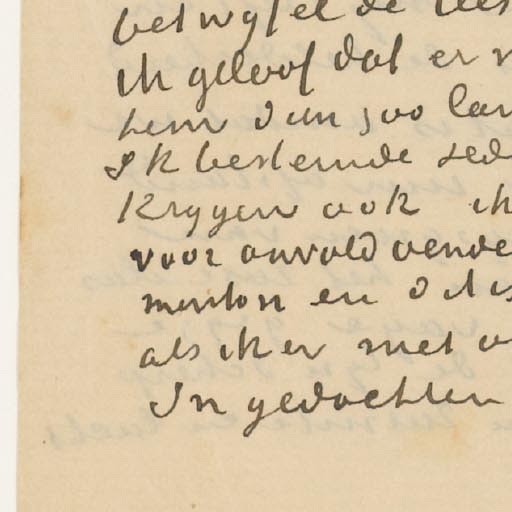 betwyfel de
ik geloof dat er
hem dan zoo lan
Ik bestemde
Krygen ook ik
voor onvoldoende
monton en dit is
als ik er met
In gedachten